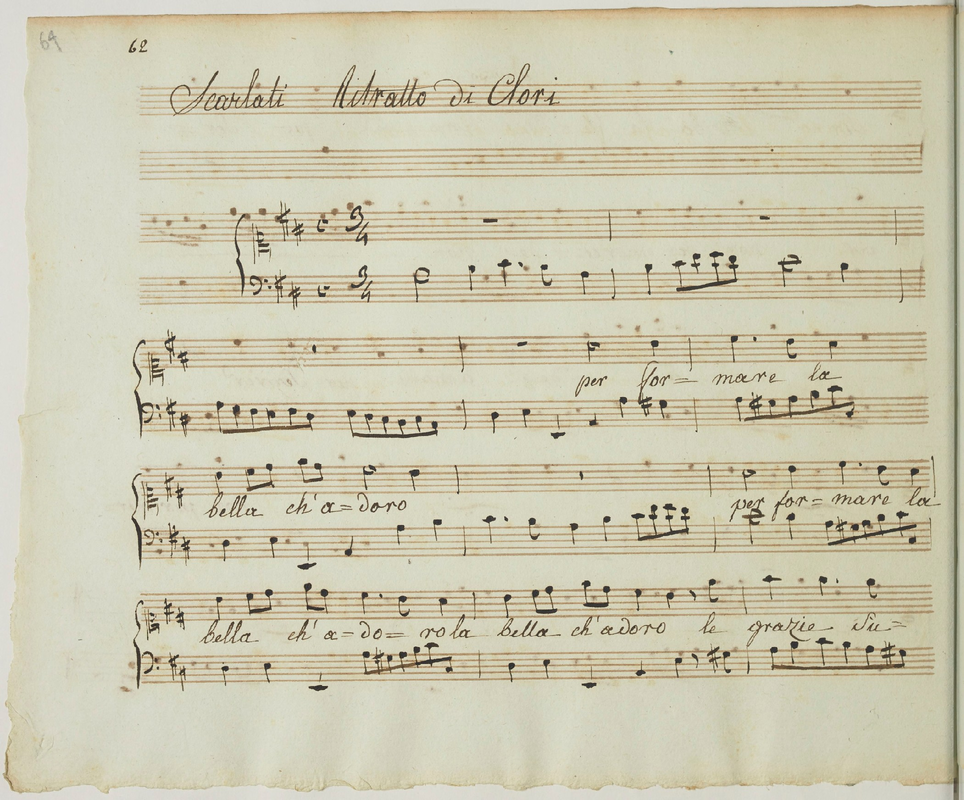 64 62
Scarlati Ritratto di Clori
3/4
3/4
per for= mare la
bella ch'a=doro per for= mare la
bella ch'a=do= rola bella ch'adoro le grazie su=